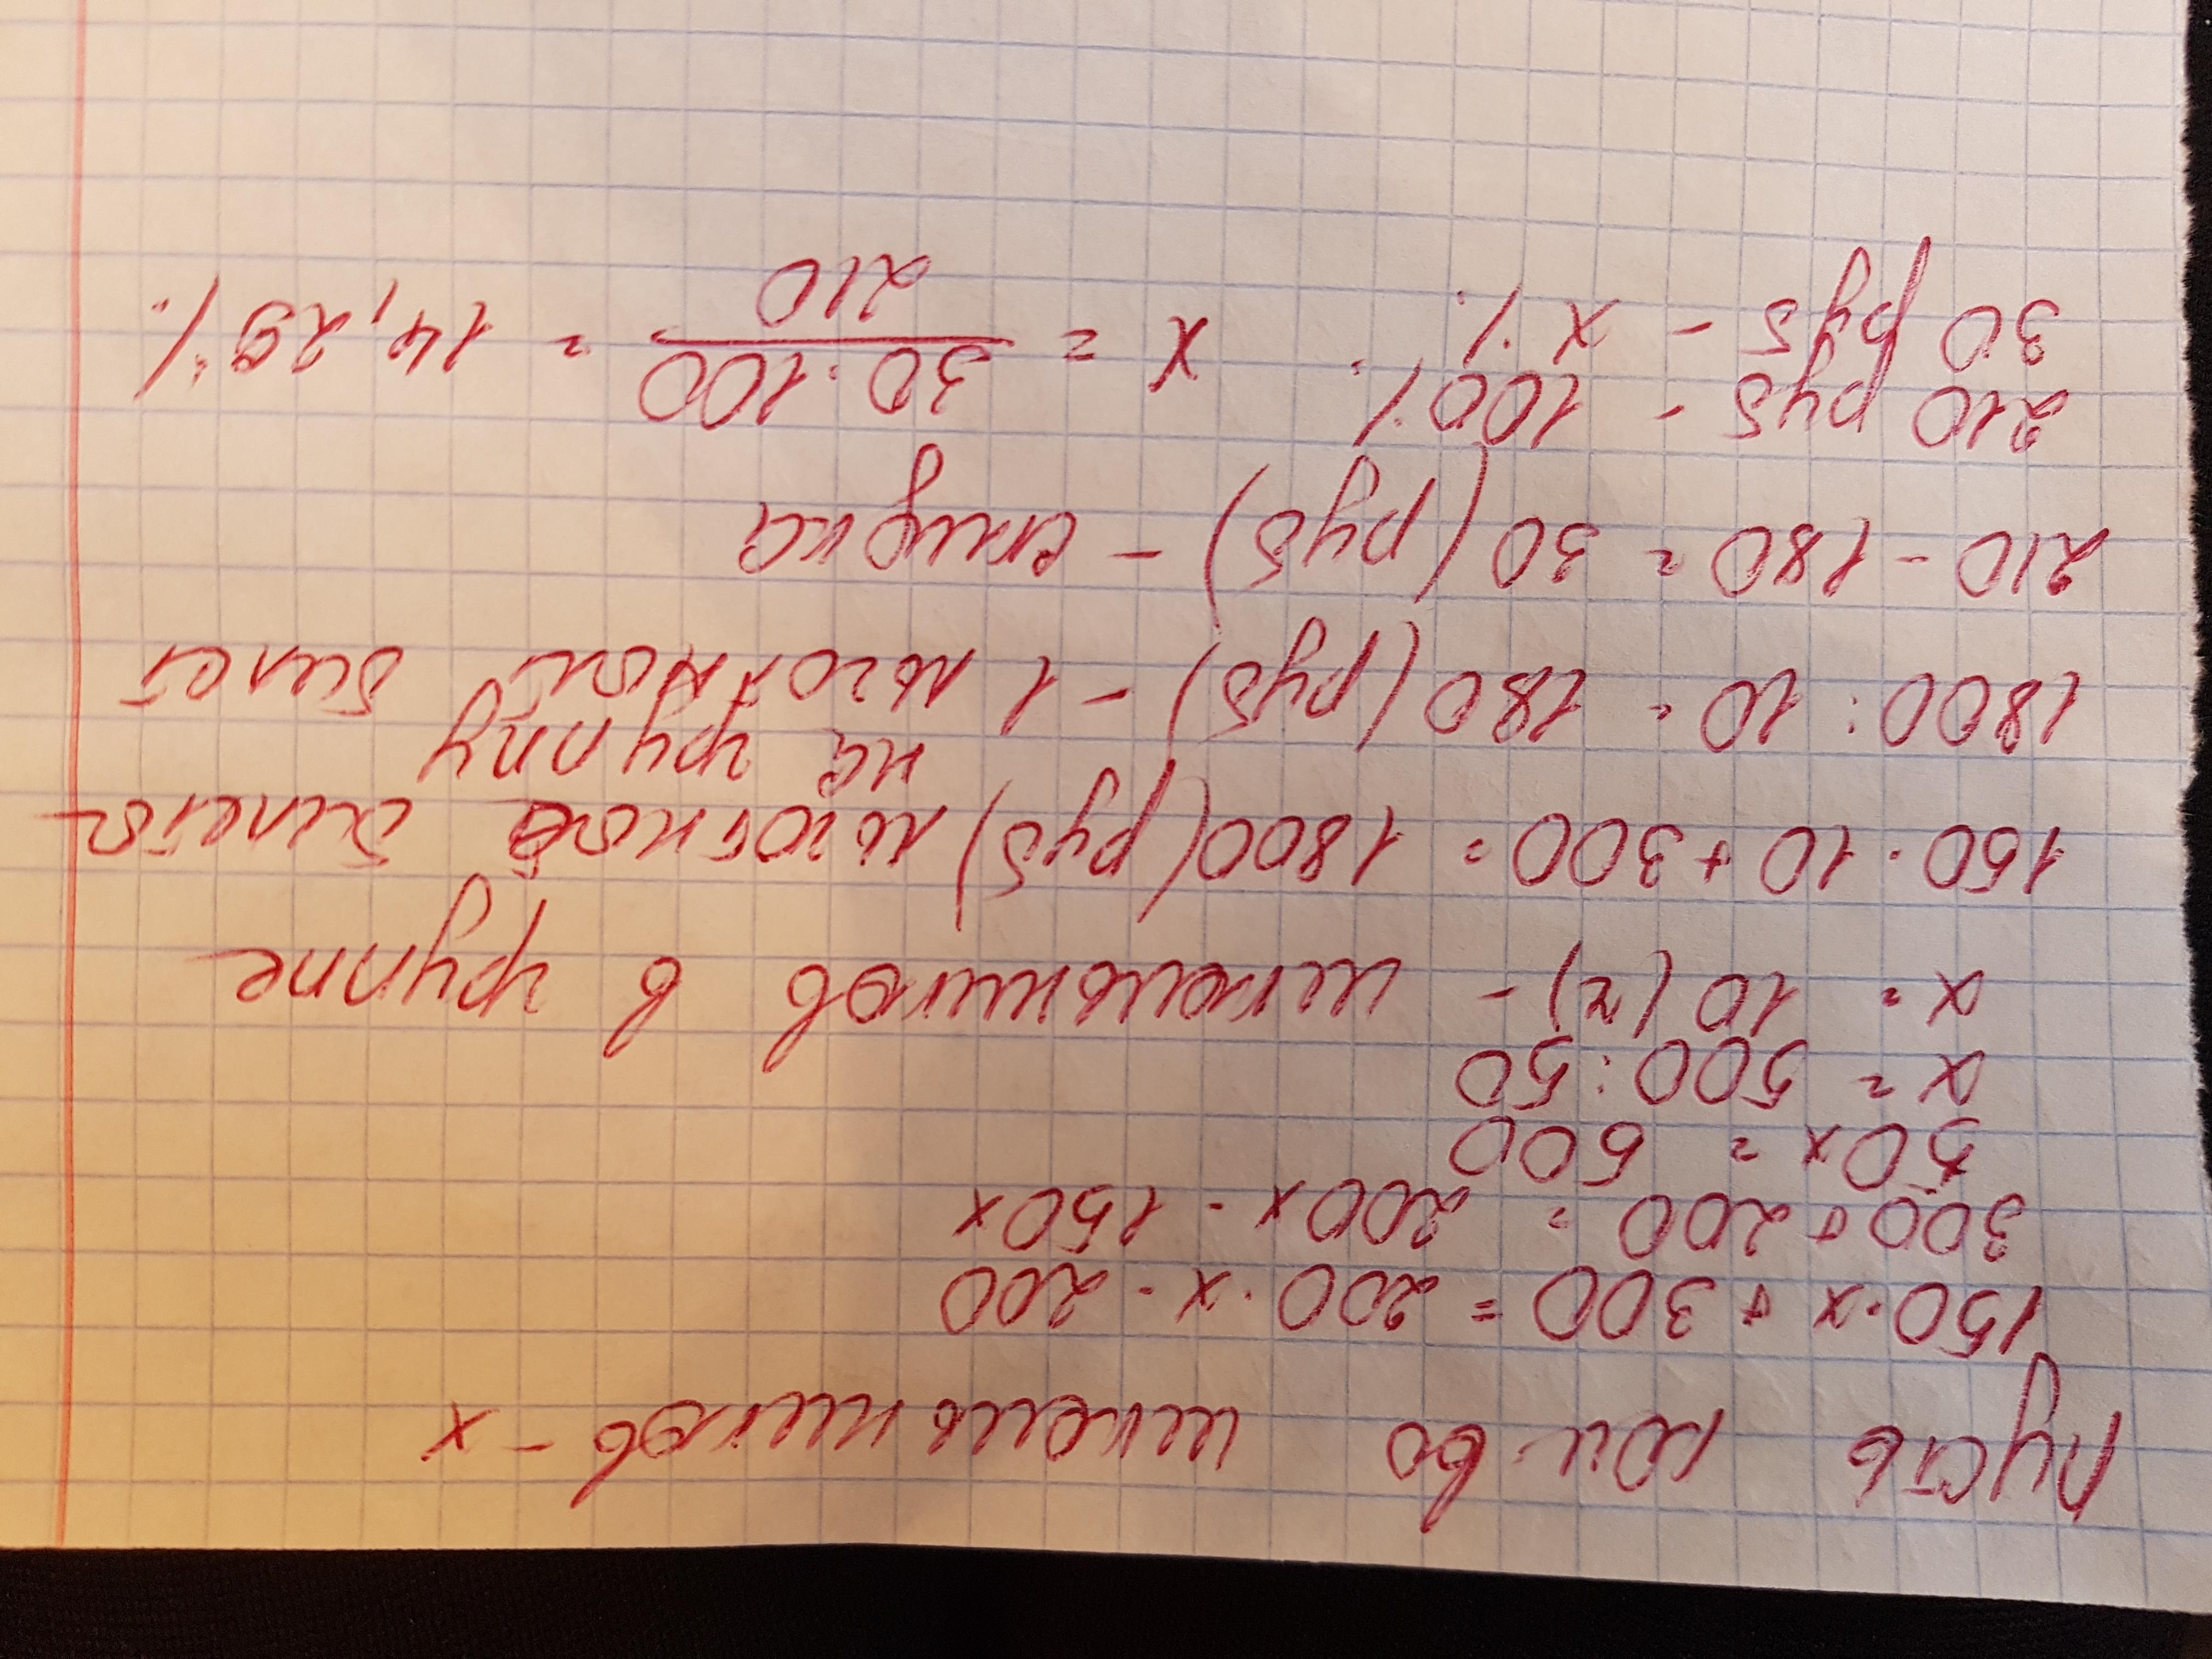 Пусть кол-во школьников - x
150·x + 300 = 200·x - 200
300 + 200 = 200x - 150x
50x = 500
x = 500:50
x = 10 (ч) - школьников в группе
150·10 + 300 = 1800 (руб) льготные билеты
на группу
1800:10 = 180 (руб) - 1 льготный билет
210 - 180 = 30 (руб) - скидка
210 руб - 100%
30 руб - x% x = 30·100/210 = 14,29%